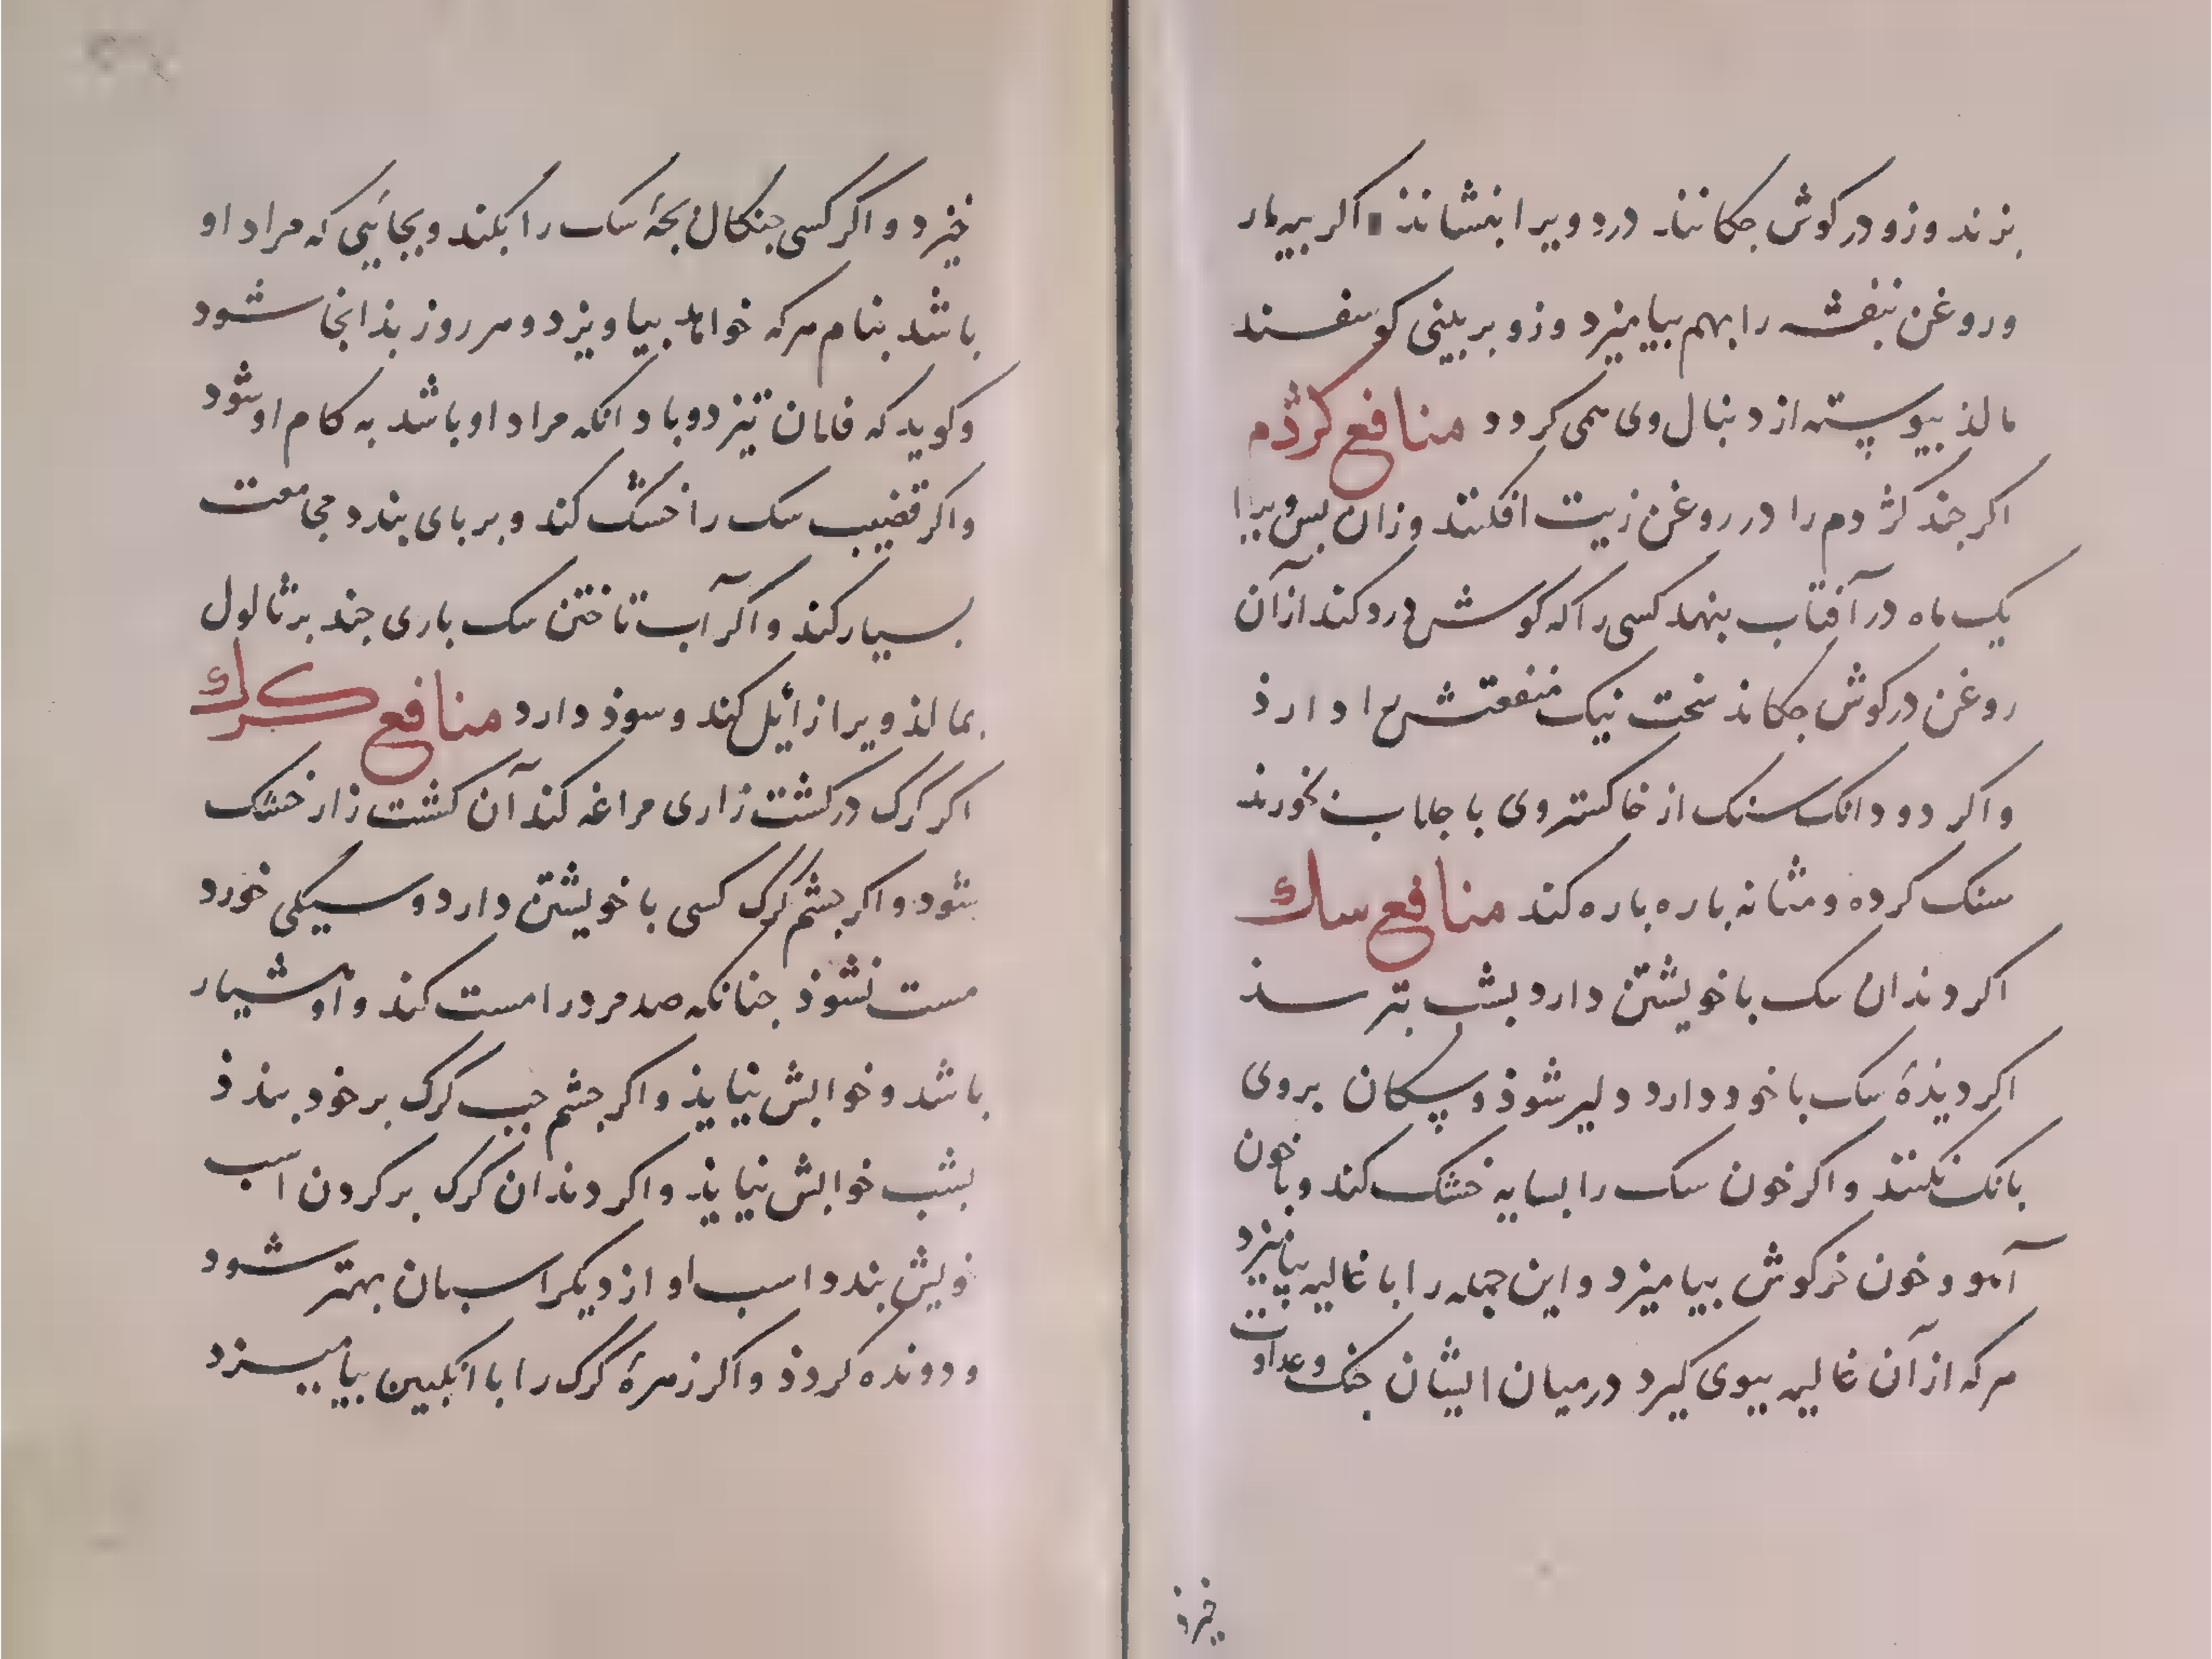 بزند وزو در کوش جکانند درد ویرا بنشاند اکر بیه مار
وروغن بنفشه را بهم بیامیزد وزو بر بینی کوسفند
مالذ بیوسته از دنبال وی همی کردد منافع کژدم
اکر جند کژدم را در روغن زیت افکنند وزان بس ویرا
یک ماه در آفتاب بنهد کسی را که کوش درد کند از آن
روغن در کوش جکاند سخت نیک منفعتش دارذ
واکر دو دانک سنک از خاکستر وی با جلاب بخورند
سنک کرده ومثانه باره باره کند منافع سك
اکر دندان سک با خویشتن دارد بشب بترسذ
اکر دیذهٔ سک با خود دارد دلیر شوذ وسکان بروی
بانک نکنند واکر خون سک را بسایه خشک کند وبا خون
آهو و خون خرکوش بیامیزد واین جمله را با غالیه بیامیزد
هرکه از آن غالیه بوی کیرد درمیان ایشان جنک وعداوت
خیزذ
خیزد واکر کسی جنکال بجهٔ سک را بکند وبجائیی که مراد او
باشد بنام هرکه خواهد بیاویزد وهر روز بذانجا شود
وکوید که فلان تیز دوباد انکه مراد او باشد به کام او شود
واکر قضیب سک را خشک کند وبر بای بندد مجامعت
بسیار کند واکر آب تاختن سک باری جند بر ثالول
بمالذ ویرا زائل کند وسوذ دارد منافع کرك
اکر کرک در کشت زاری مراغه کند آن کشت زار خشک
شود واکر جشم کرک کسی با خویشتن دارد وسیکی خورد
مست نشوذ جنانکه صد مرد را مست کند واو هشیار
باشد وخوابش نیایذ واکر جشم جب کرک بر خود بندذ
بشب خوابش نیایذ واکر دندان کرک بر کردن اسب
خویش بندد اسب او از دیکر اسبان بهتر شود
ودونده کردذ واکر زهرهٔ کرک را با انکبین بیامیزد